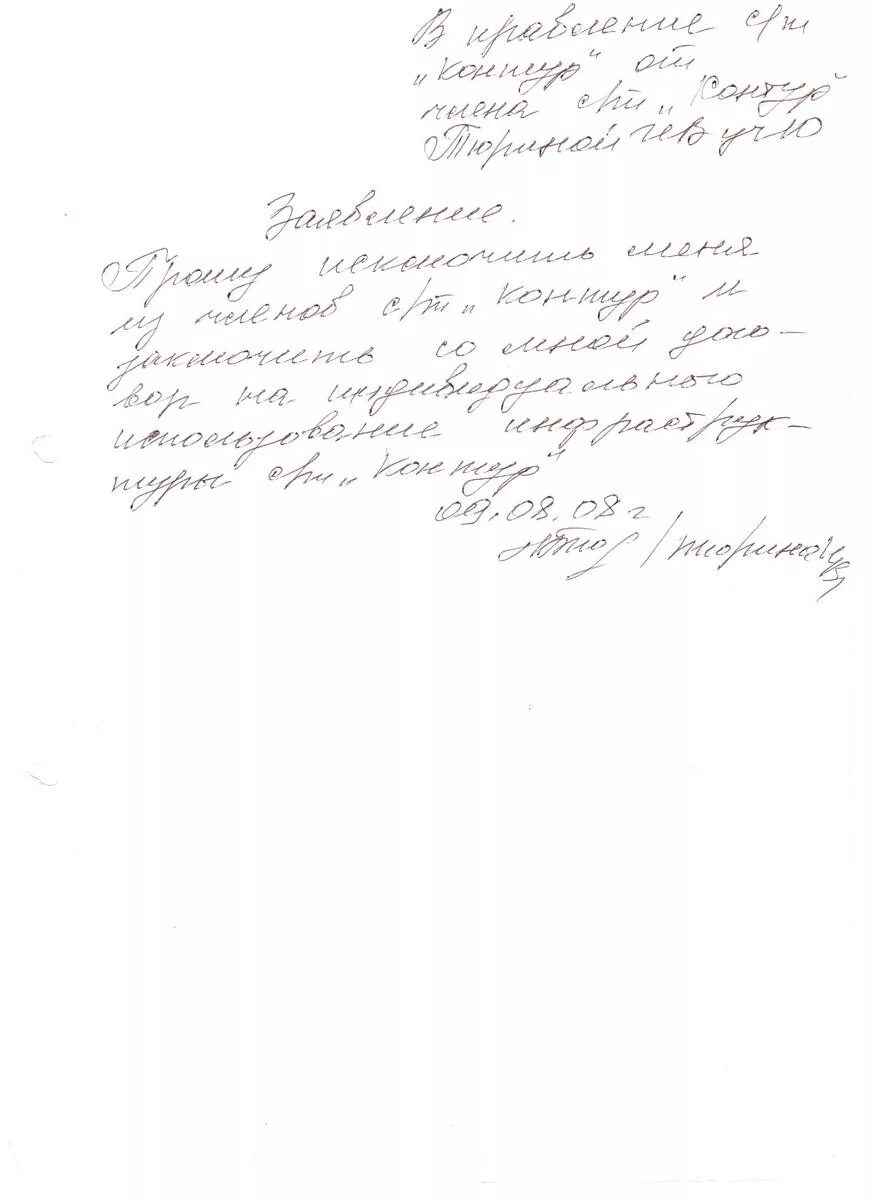 В правление с/т
„Контур" от
члена с/т „Контур"
Тюриной уч 10
Заявление.
Прошу исключить меня
из членов с/т „Контур" и
заключить со мной дого-
вор на индивидуального
использование инфраструк-
туры с/т „Контур"
09.08.08 г
/Тюрина